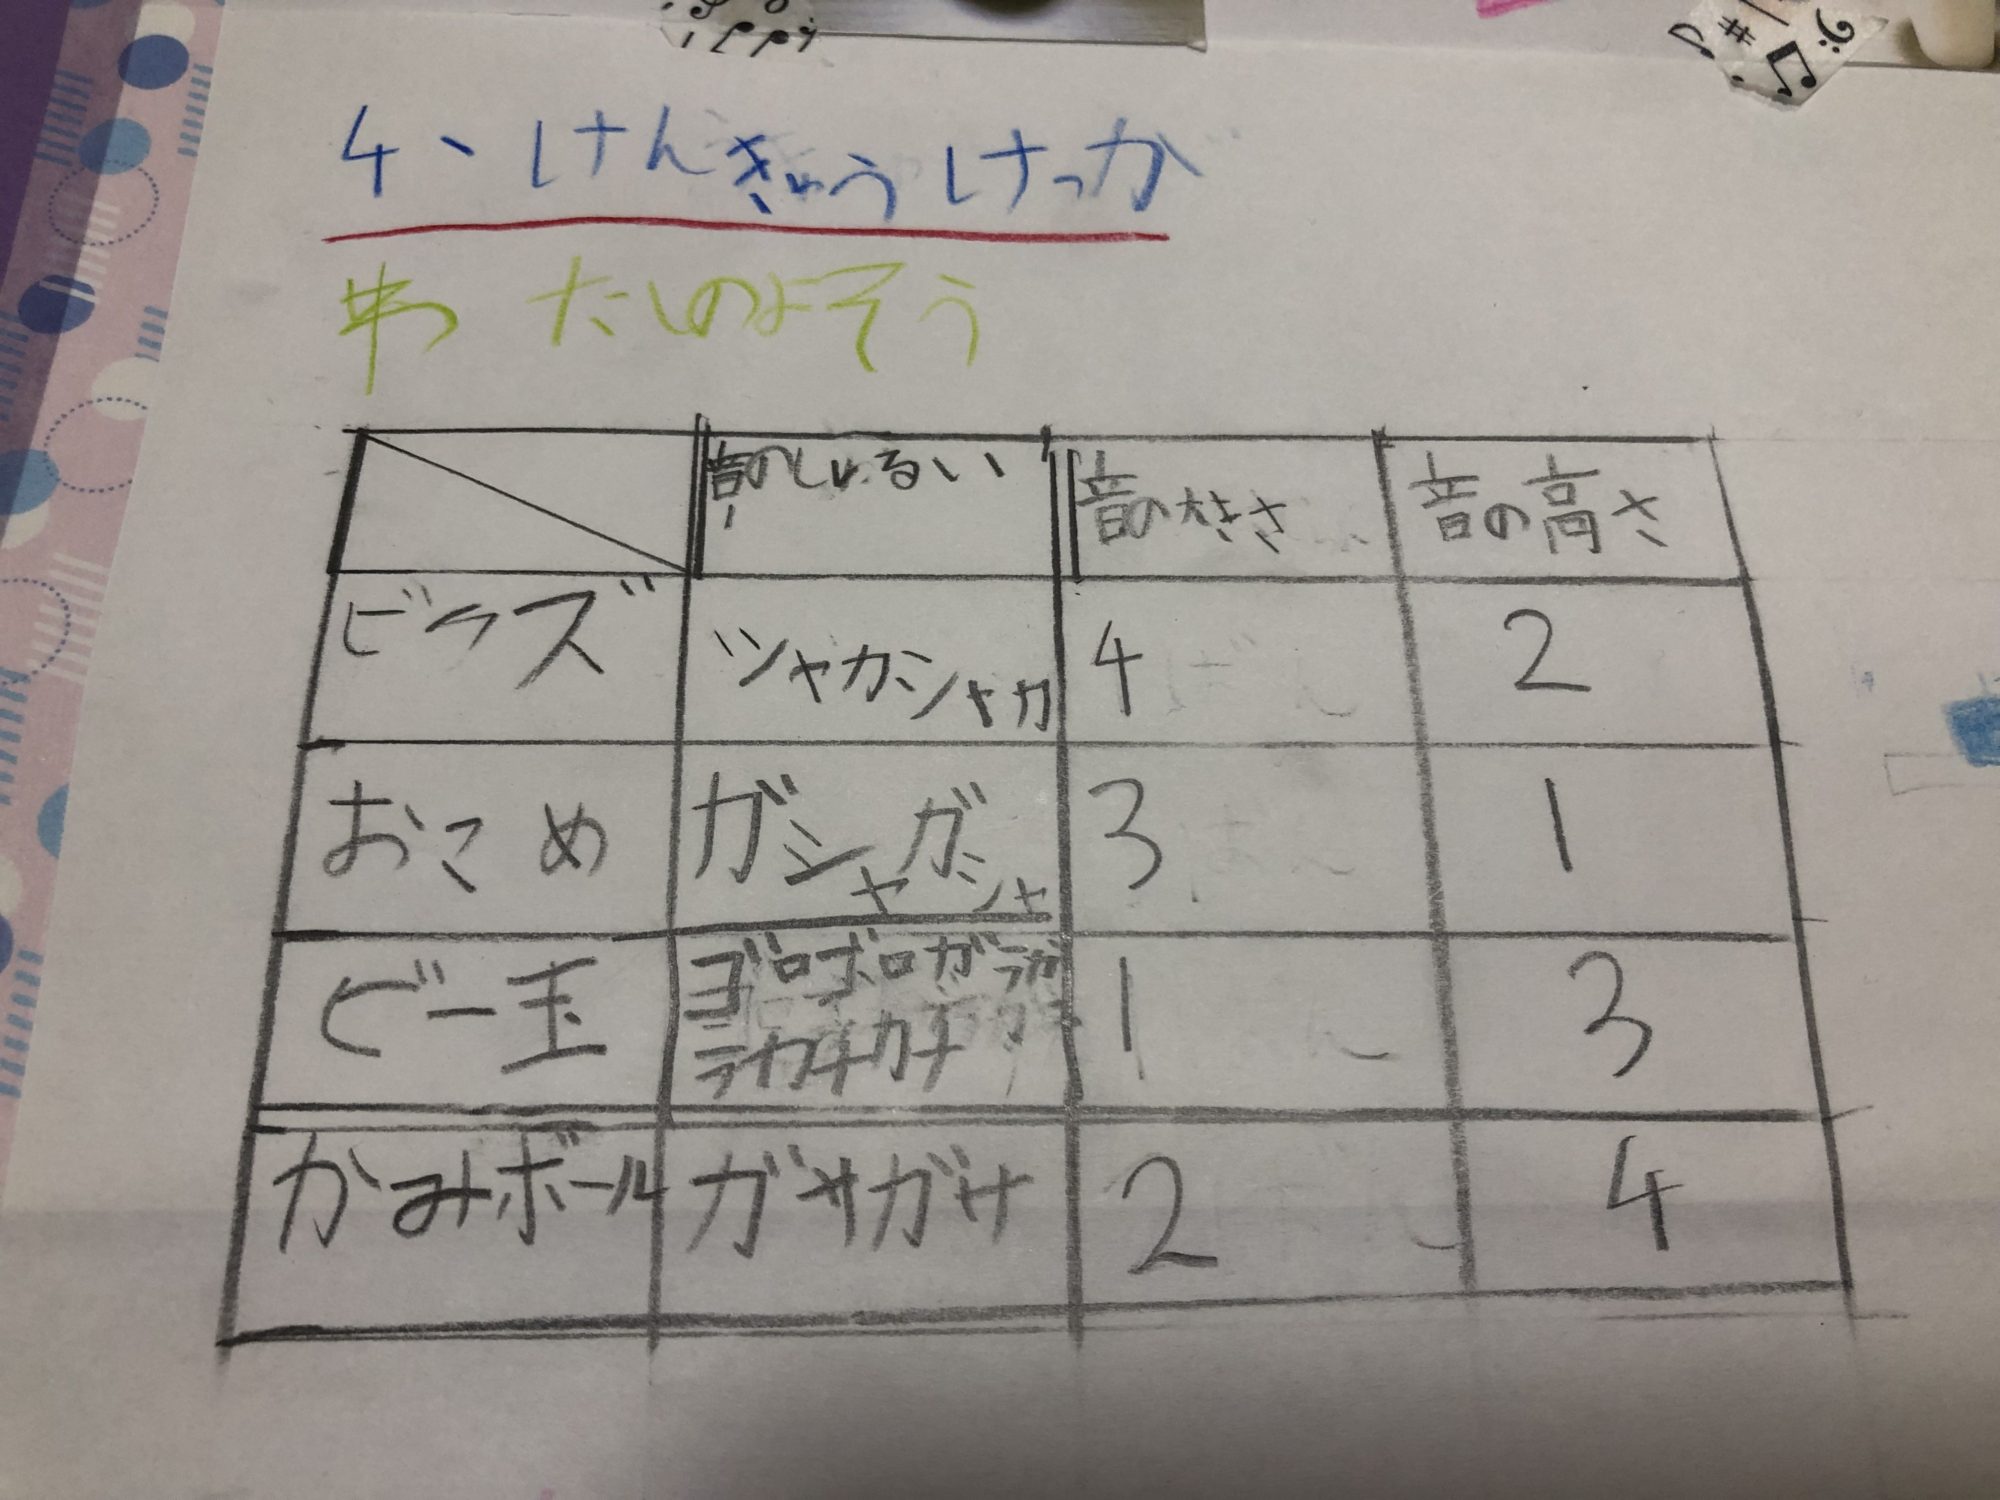 4、けんきゅうけっか
わたしのよそう
音のしゅるい 音の大きさ 音の高さ
ビーズ シャカシャカ 4 2
おこめ ガシャガシャ 3 1
ビー玉 ゴロゴロガラガ 1 3
ラカチカチ
かみボール ガサガサ 2 4